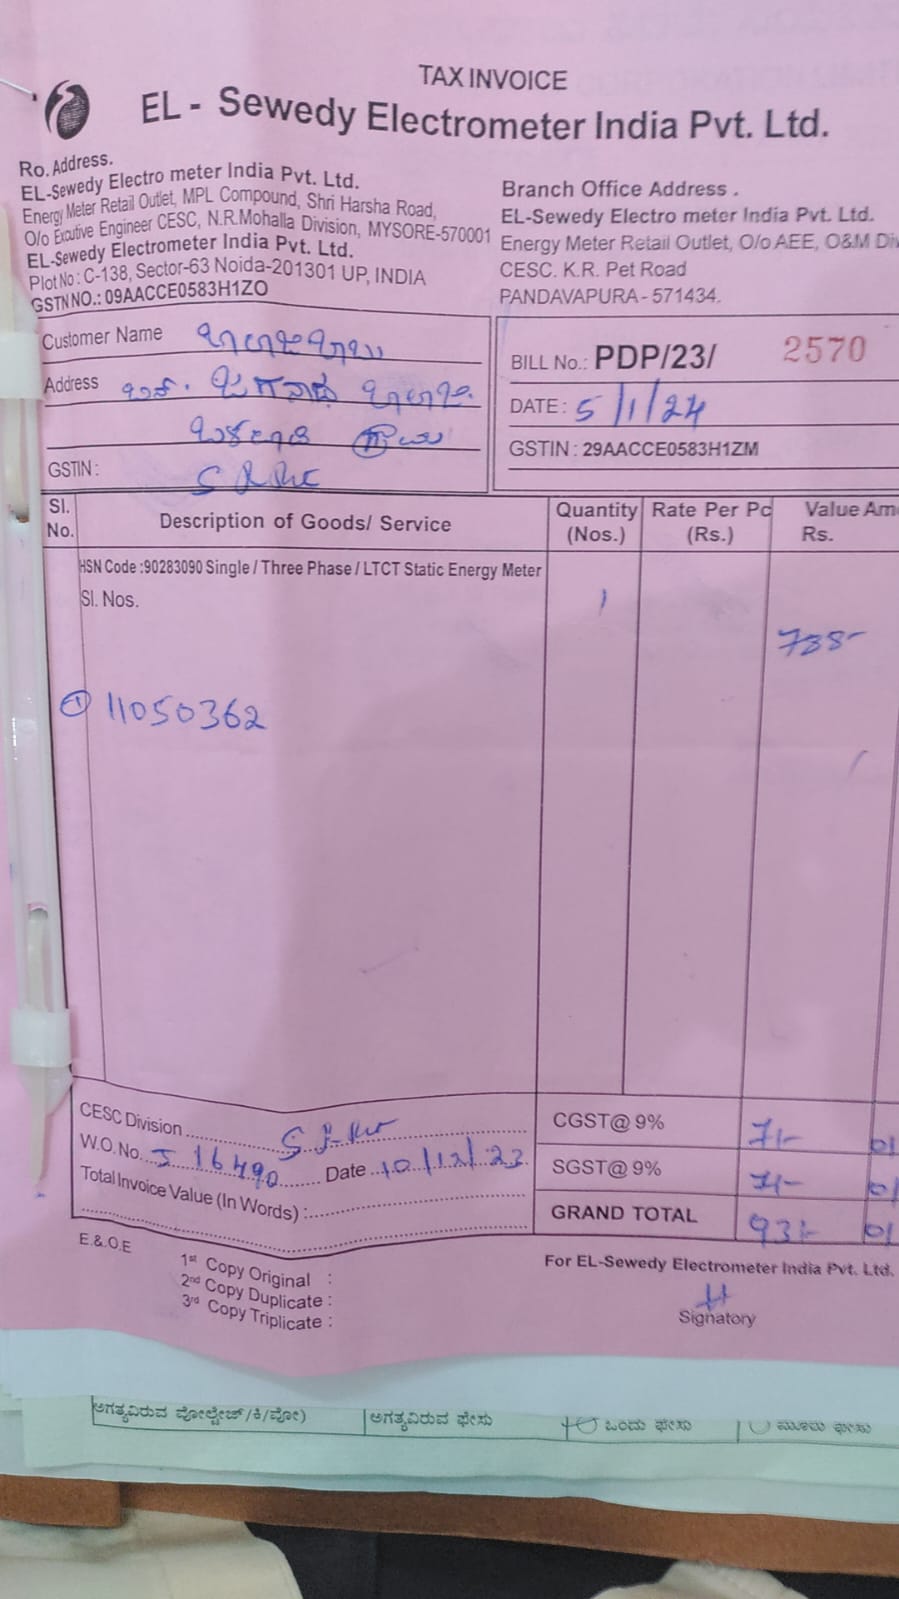 TAX INVOICE
EL - Sewedy Electrometer India Pvt. Ltd.
Ro. Address.
EL-Sewedy Electro meter India Pvt. Ltd.
Energy Meter Retail Outlet, MPL Compound, Shri Harsha Road,
O/o Excutive Engineer CESC, N.R.Mohalla Division, MYSORE-570001
EL-Sewedy Electrometer India Pvt. Ltd.
Plot No : C-138, Sector-63 Noida-201301 UP, INDIA
GSTN NO.: 09AACCE0583H1ZO
Branch Office Address .
EL-Sewedy Electro meter India Pvt. Ltd.
Energy Meter Retail Outlet, O/o AEE, O&M Div
CESC. K.R. Pet Road
PANDAVAPURA - 571434.
Customer Name
Address
GSTIN :
BILL No.: PDP/23/ 2570
DATE : 5/1/24
GSTIN : 29AACCE0583H1ZM
Sl. No. Description of Goods/ Service Quantity (Nos.) Rate Per Pc (Rs.) Value Am Rs.
HSN Code :90283090 Single / Three Phase / LTCT Static Energy Meter
Sl. Nos. 1
① 11050362
CESC Division
W.O. No. Date 10/12/23
Total Invoice Value (In Words) :
CGST@ 9% 71/- 01
SGST@ 9% 71/- 01
GRAND TOTAL 931/- 01
E.&.O.E
1st Copy Original :
2nd Copy Duplicate :
3rd Copy Triplicate :
For EL-Sewedy Electrometer India Pvt. Ltd.
Signatory
ಅಗತ್ಯವಿರುವ ವೋಲ್ಟೇಜ್/ಕಿ/ವೋ) ಅಗತ್ಯವಿರುವ ಫೇಸು ಒಂದು ಫೇಸು ಮೂರು ಫೇಸು